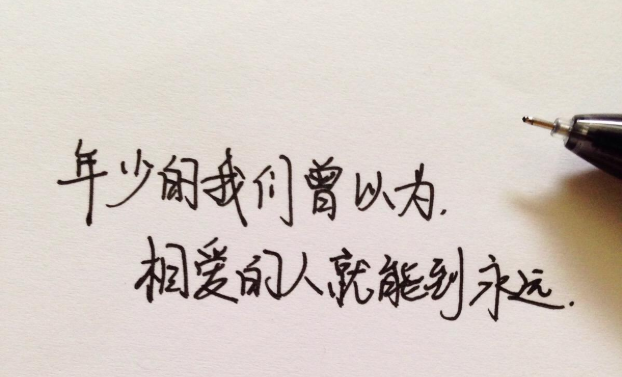 年少的我们曾以为.
相爱的人就能到永远.